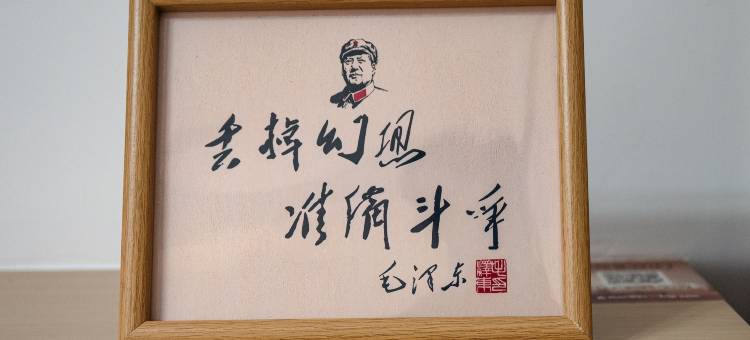 丢掉幻想
准备斗争
毛泽东
毛印
澤東